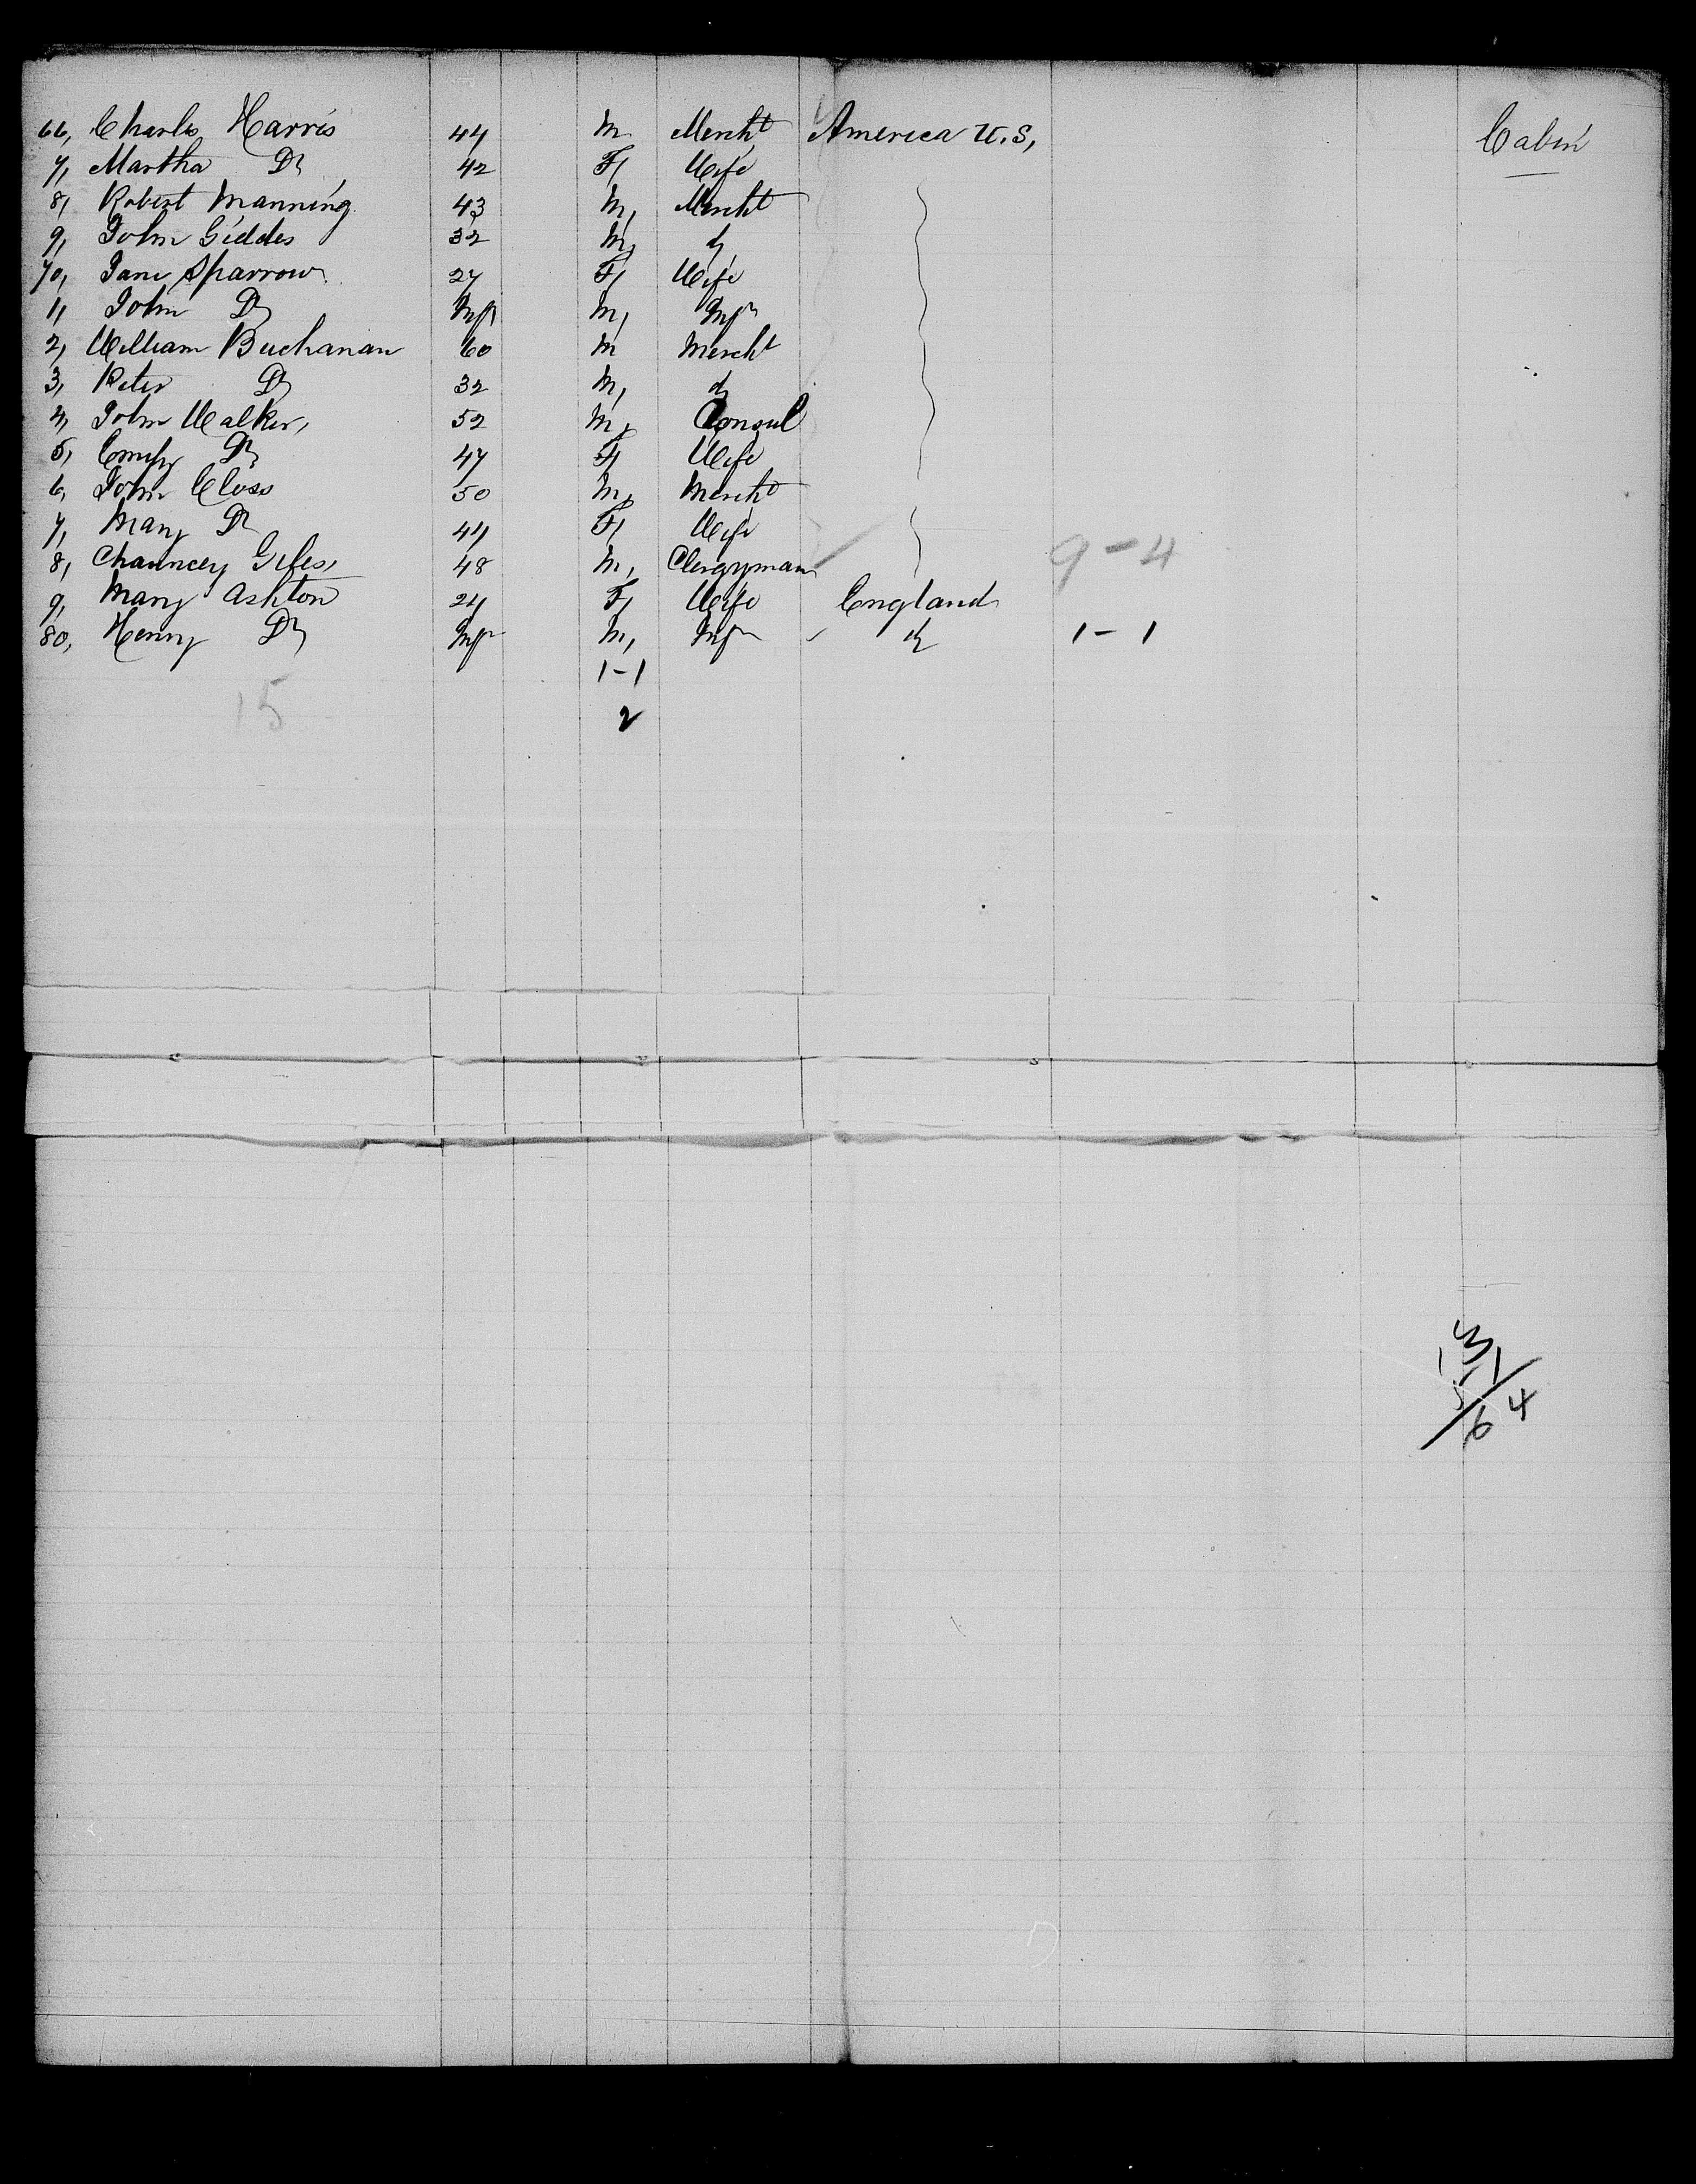 66, Charles Harris 44 M Mercht America U.S, Cabin
7, Martha Do 42 F, Wife
8, Robert Manning 43 M, Mercht
9, John Geddes 32 M, do
70, Jane Sparrow 27 F, Wife
1, John Do Inft M, Inft
2, William Buchanan 60 M Mercht
3, Peter Do 32 M, do
4, John Walker, 52 M, Consul
5, Emily Do 47 F, Wife
6, John Closs 50 M, Mercht
7, Mary Do 44 F, Wife
8, Chauncey Giles, 48 M, Clergyman 9-4
9, Mary Ashton 24 F, Wife England
80, Henry Do Inft M, Inft do 1-1
1-1
15 2
31
15
/64